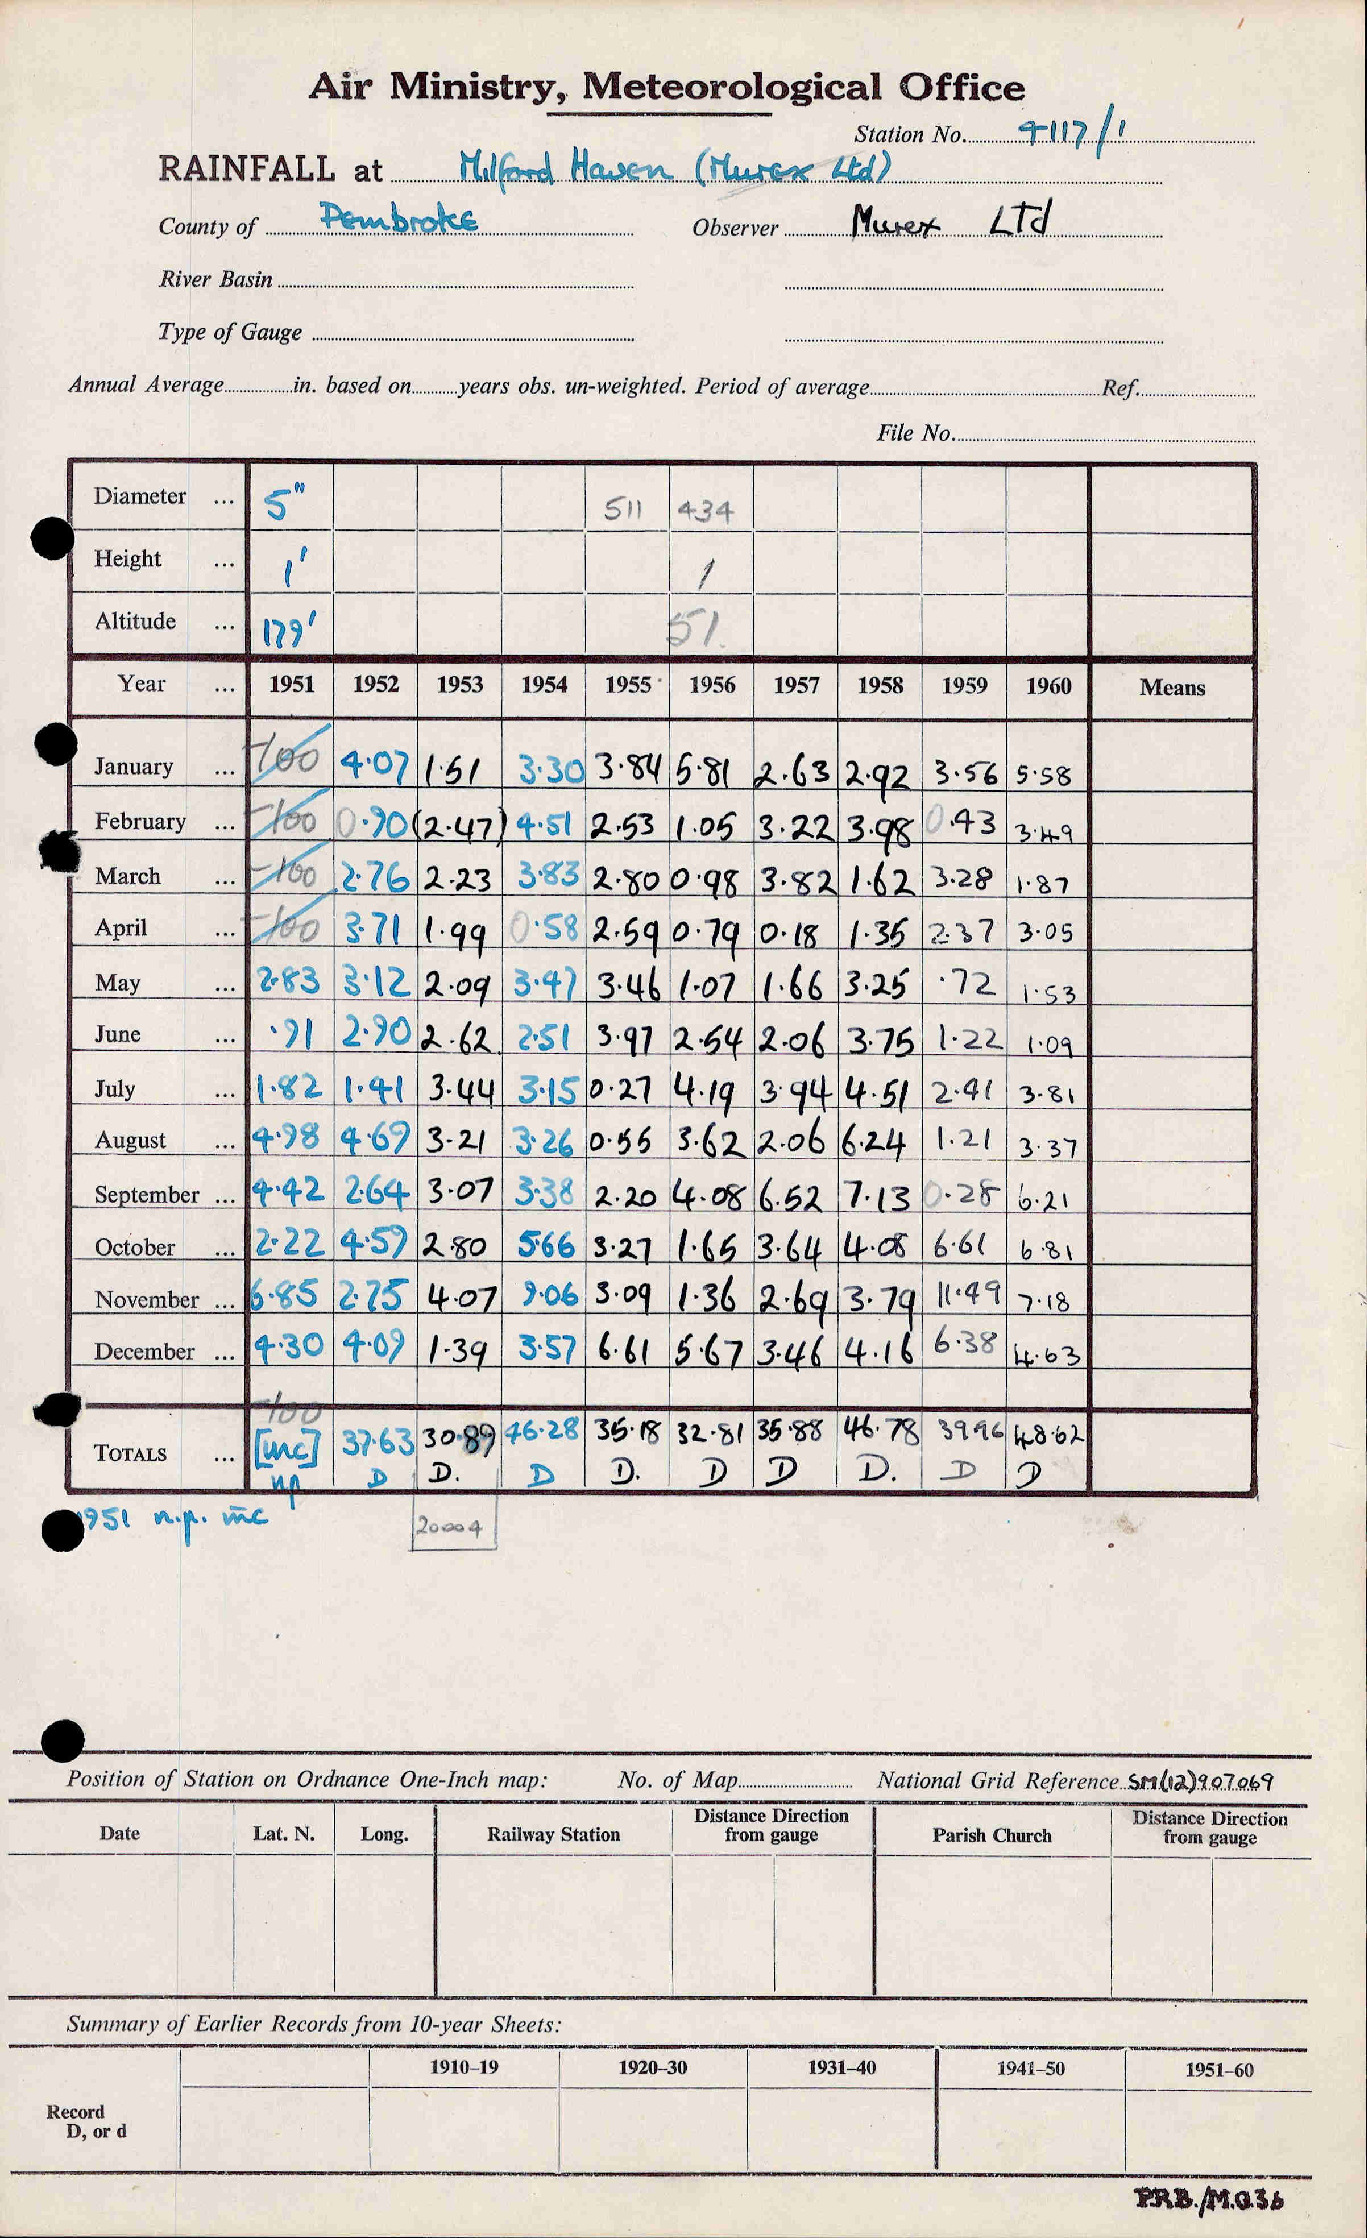 Air Ministry, Meteorological Office
Station No. 4117/1
RAINFALL at Milford Haven (Murex Ltd)
County of Pembroke Observer Murex LTd
River Basin
Type of Gauge
Annual Average in. based on years obs. un-weighted. Period of average Ref.
File No.
Diameter ... 5" 511 434
Height ... 1' 1
Altitude ... 179' 51.
Year ... 1951 1952 1953 1954 1955 1956 1957 1958 1959 1960 Means
January ... -100 4·07 1·51 3·30 3·84 5·81 2·63 2·92 3·56 5·58
February ... -100 0·90 (2·47) 4·51 2·53 1·05 3·22 3·98 0·43 3·49
March ... -100 2·76 2·23 3·83 2·80 0·98 3·82 1·62 3·28 1·87
April ... -100 3·71 1·99 0·58 2·59 0·79 0·18 1·35 2·37 3·05
May ... 2·83 3·12 2·09 3·47 3·46 1·07 1·66 3·25 ·72 1·53
June ... ·91 2·90 2·62 2·51 3·97 2·54 2·06 3·75 1·22 1·09
July ... 1·82 1·41 3·44 3·15 0·27 4·19 3·94 4·51 2·41 3·81
August ... 4·98 4·69 3·21 3·26 0·55 3·62 2·06 6·24 1·21 3·37
September ... 4·42 2·64 3·07 3·38 2·20 4·08 6·52 7·13 0·28 6·21
October ... 2·22 4·59 2·80 5·66 3·27 1·65 3·64 4·08 6·61 6·81
November ... 6·85 2·75 4·07 9·06 3·09 1·36 2·69 3·79 11·49 7·18
December ... 4·30 4·09 1·39 3·57 6·61 5·67 3·46 4·16 6·38 4·63
-100
TOTALS ... [inc] 37·63 30·89 46·28 35·18 32·81 35·88 46·78 39·96 48·62
np D D. D D. D D D. D D
1951 n.p. inc 20004
Position of Station on Ordnance One-Inch map: No. of Map National Grid Reference SM(12)907069
Date Lat. N. Long. Railway Station Distance Direction from gauge Parish Church Distance Direction from gauge
Summary of Earlier Records from 10-year Sheets:
1910–19 1920–30 1931–40 1941–50 1951–60
Record
D, or d
P.R.B./M.O.36